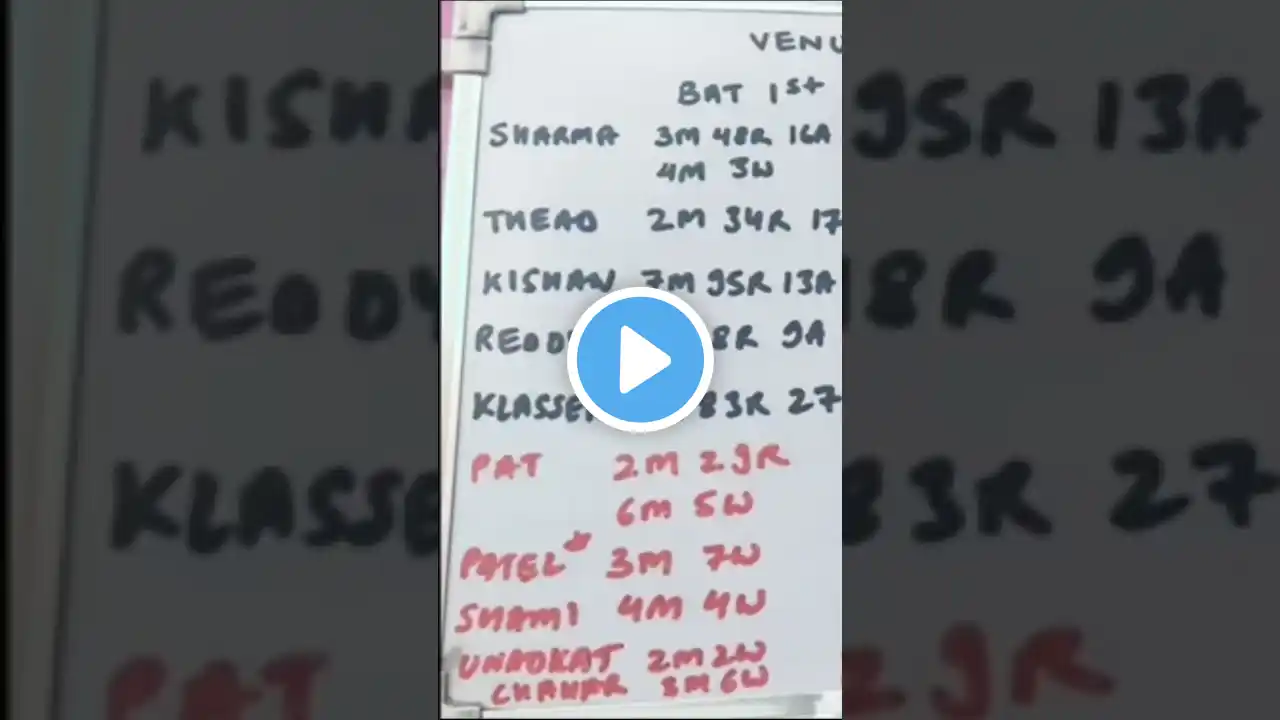 VENU
BAT 1st
SHARMA 3M 48R 16A
4M 3W
THEAD 2M 34R 17
KISHAN 7M 95R 13A
REDDY 8R 9A
KLASSE 83R 27
PAT 2M 29R
6M 5W
PATEL* 3M 7W
SHAMI 4M 4W
UNADKAT 2M 2W
CHAHAR 8M 6W